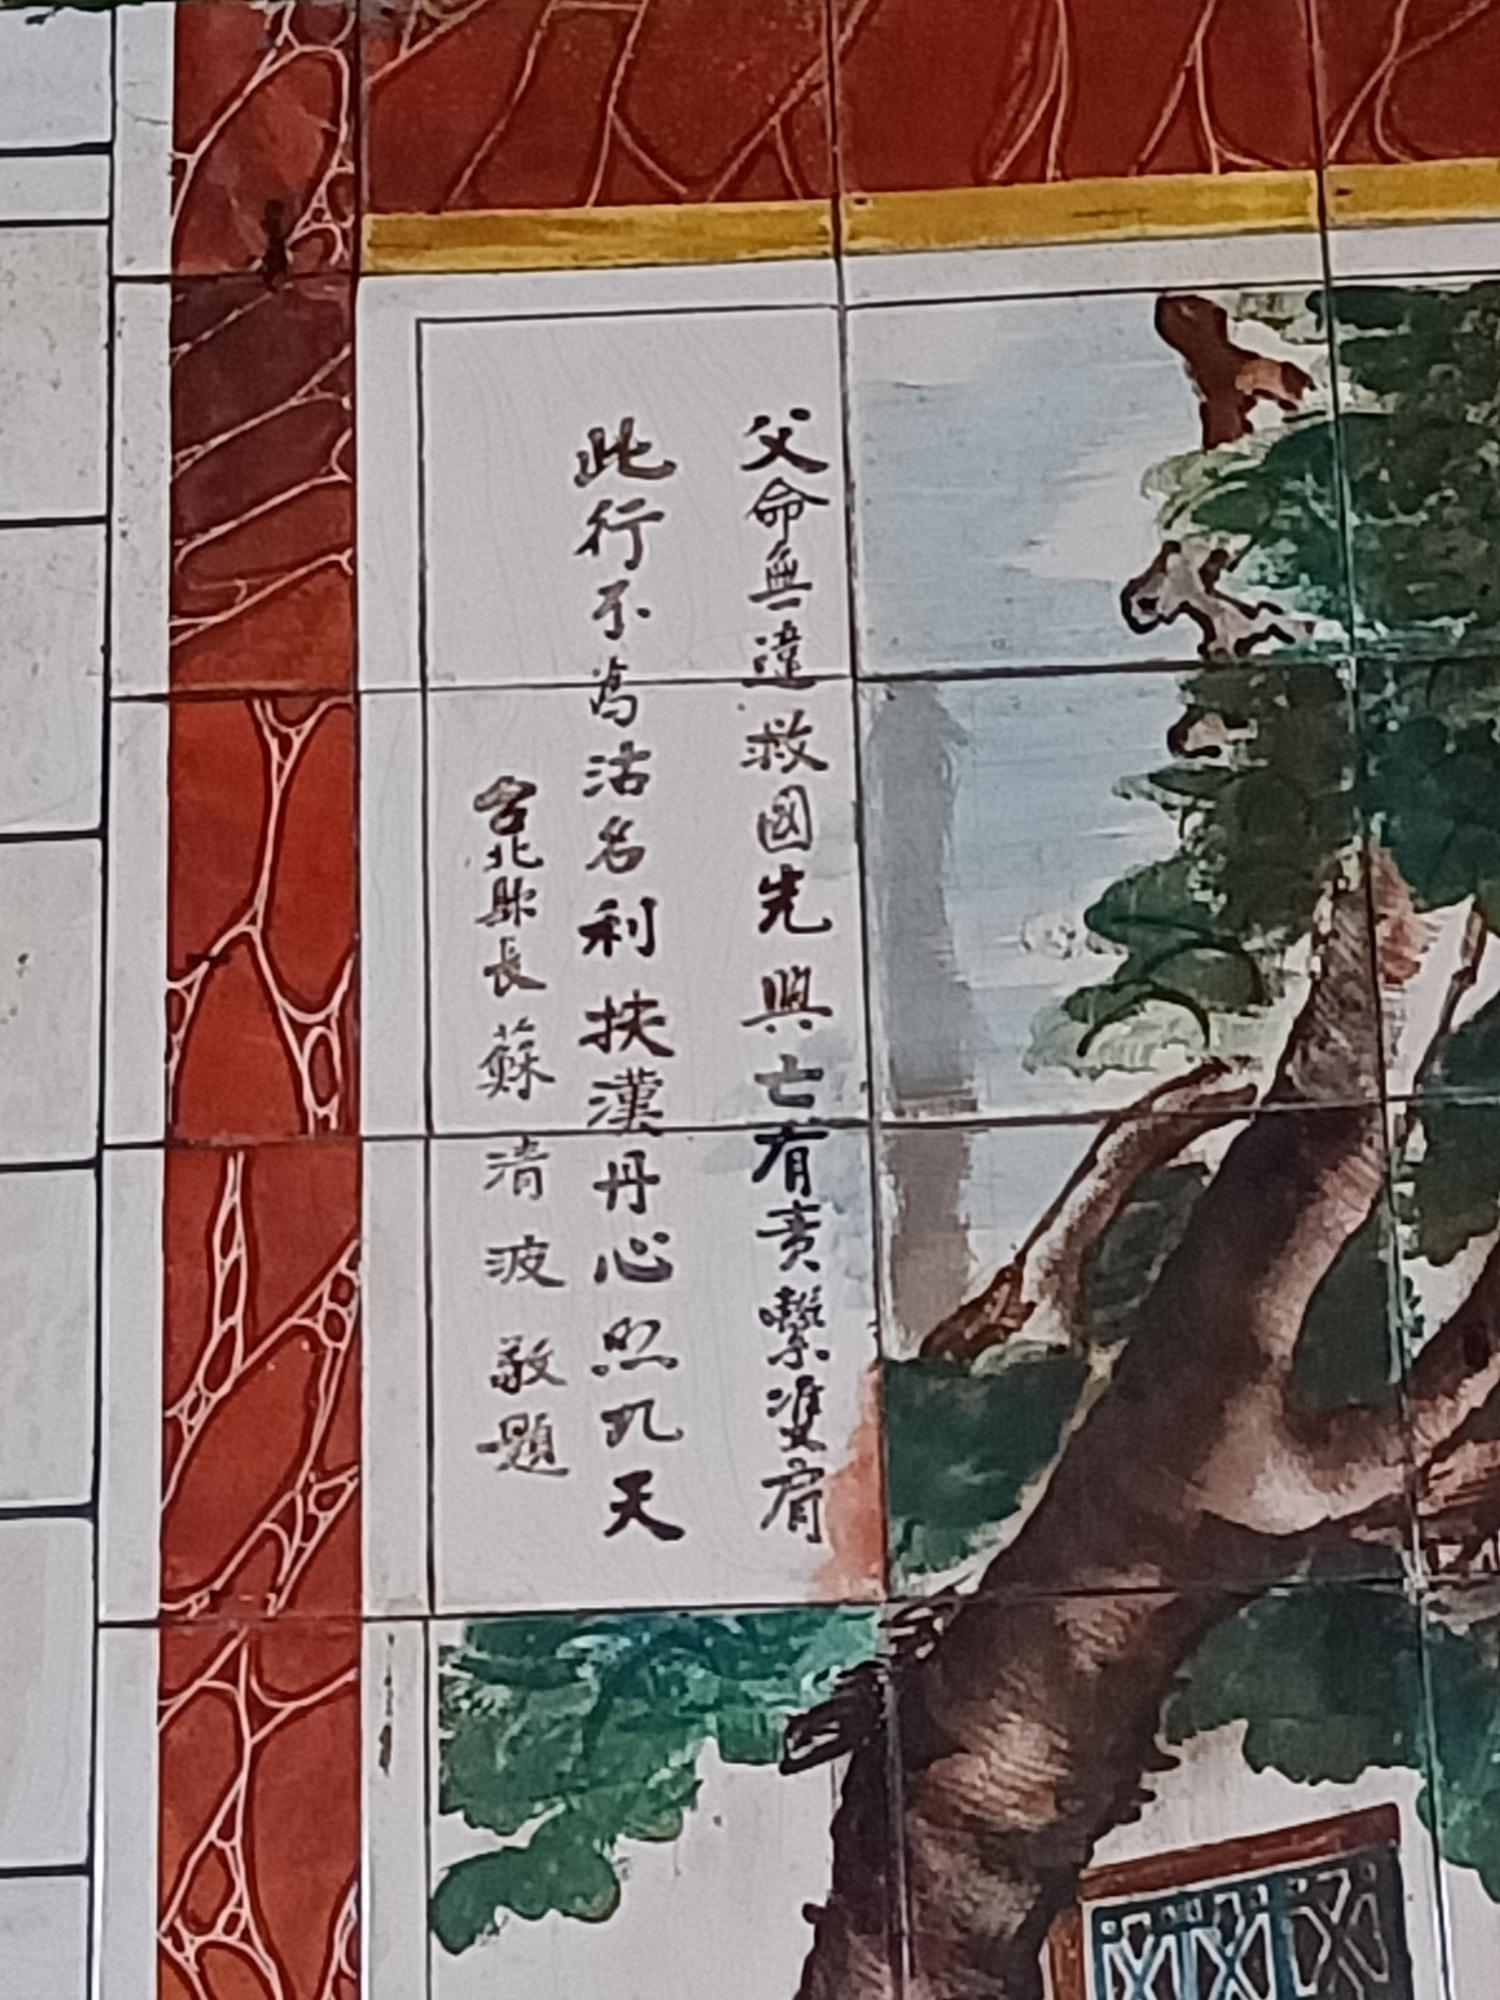 父命無違救國先興亡有責繫雙肩
此行不為沽名利扶漢丹心照九天
台北縣長蘇清波敬題